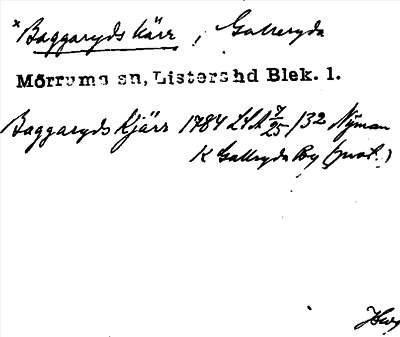 *Baggaryds kärr, Galleryda
Mörrums sn, Listershd Blek. l.
Baggaryds Kjärr 1784 LSA 7/25 /32 Nyman
K Gallryda By (prot.)